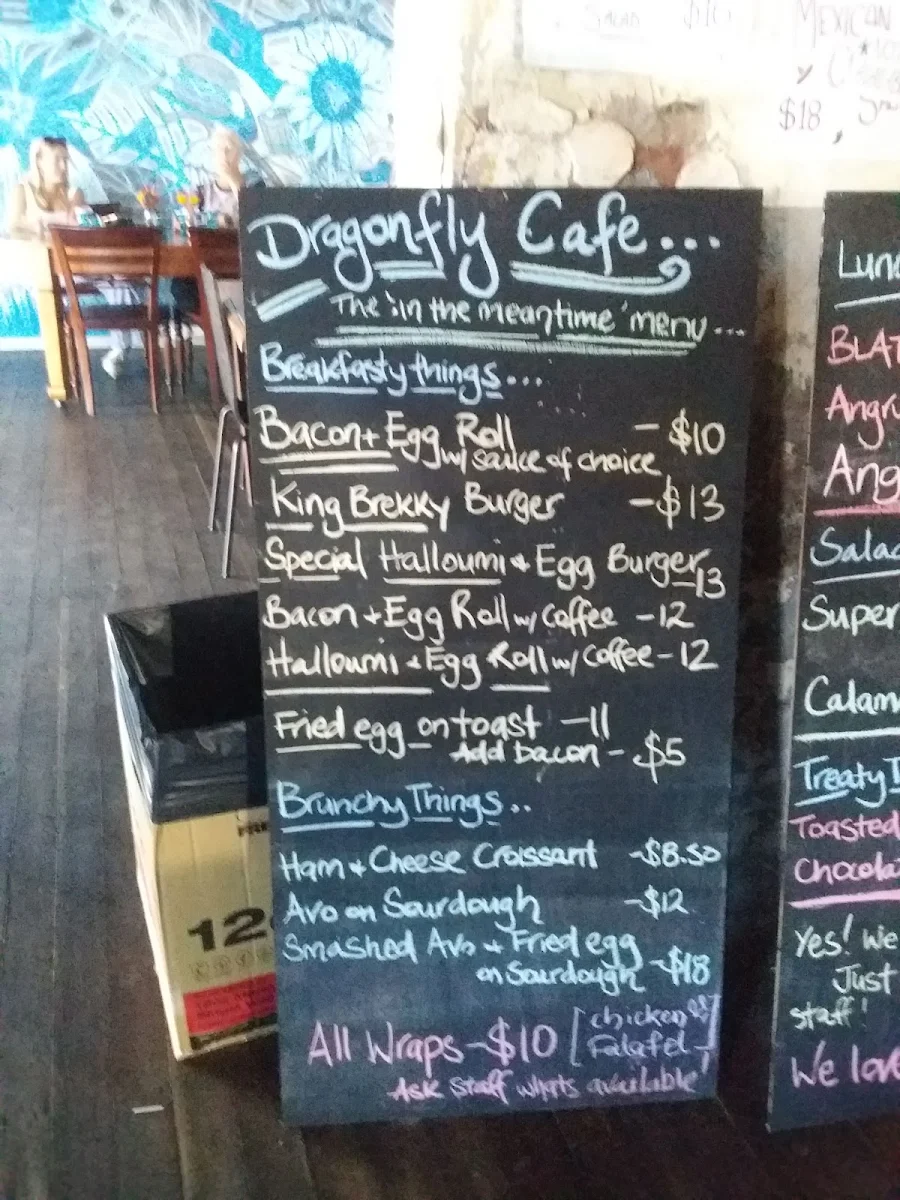 Salad $10
MEXICAN
$18
Dragonfly Cafe...
The 'in the meantime' menu...
Breakfasty things...
Bacon + Egg Roll - $10
w/ sauce of choice
King Brekky Burger - $13
Special Halloumi + Egg Burger
- 13
Bacon + Egg Roll w/ Coffee - 12
Halloumi + Egg Roll w/ Coffee - 12
Fried egg on toast - 11
Add bacon - $5
Brunchy Things..
Ham + Cheese Croissant - $8.50
Avo on Sourdough - $12
Smashed Avo + Fried egg
on Sourdough - $18
All Wraps - $10 [chicken
Falafel]
Ask staff whats available!
Lunc
BLAT
Angr
Ang
Salad
Super
Calam
Treaty T
Toasted
Chocola
Yes! We
Just
staff!
We lov
12